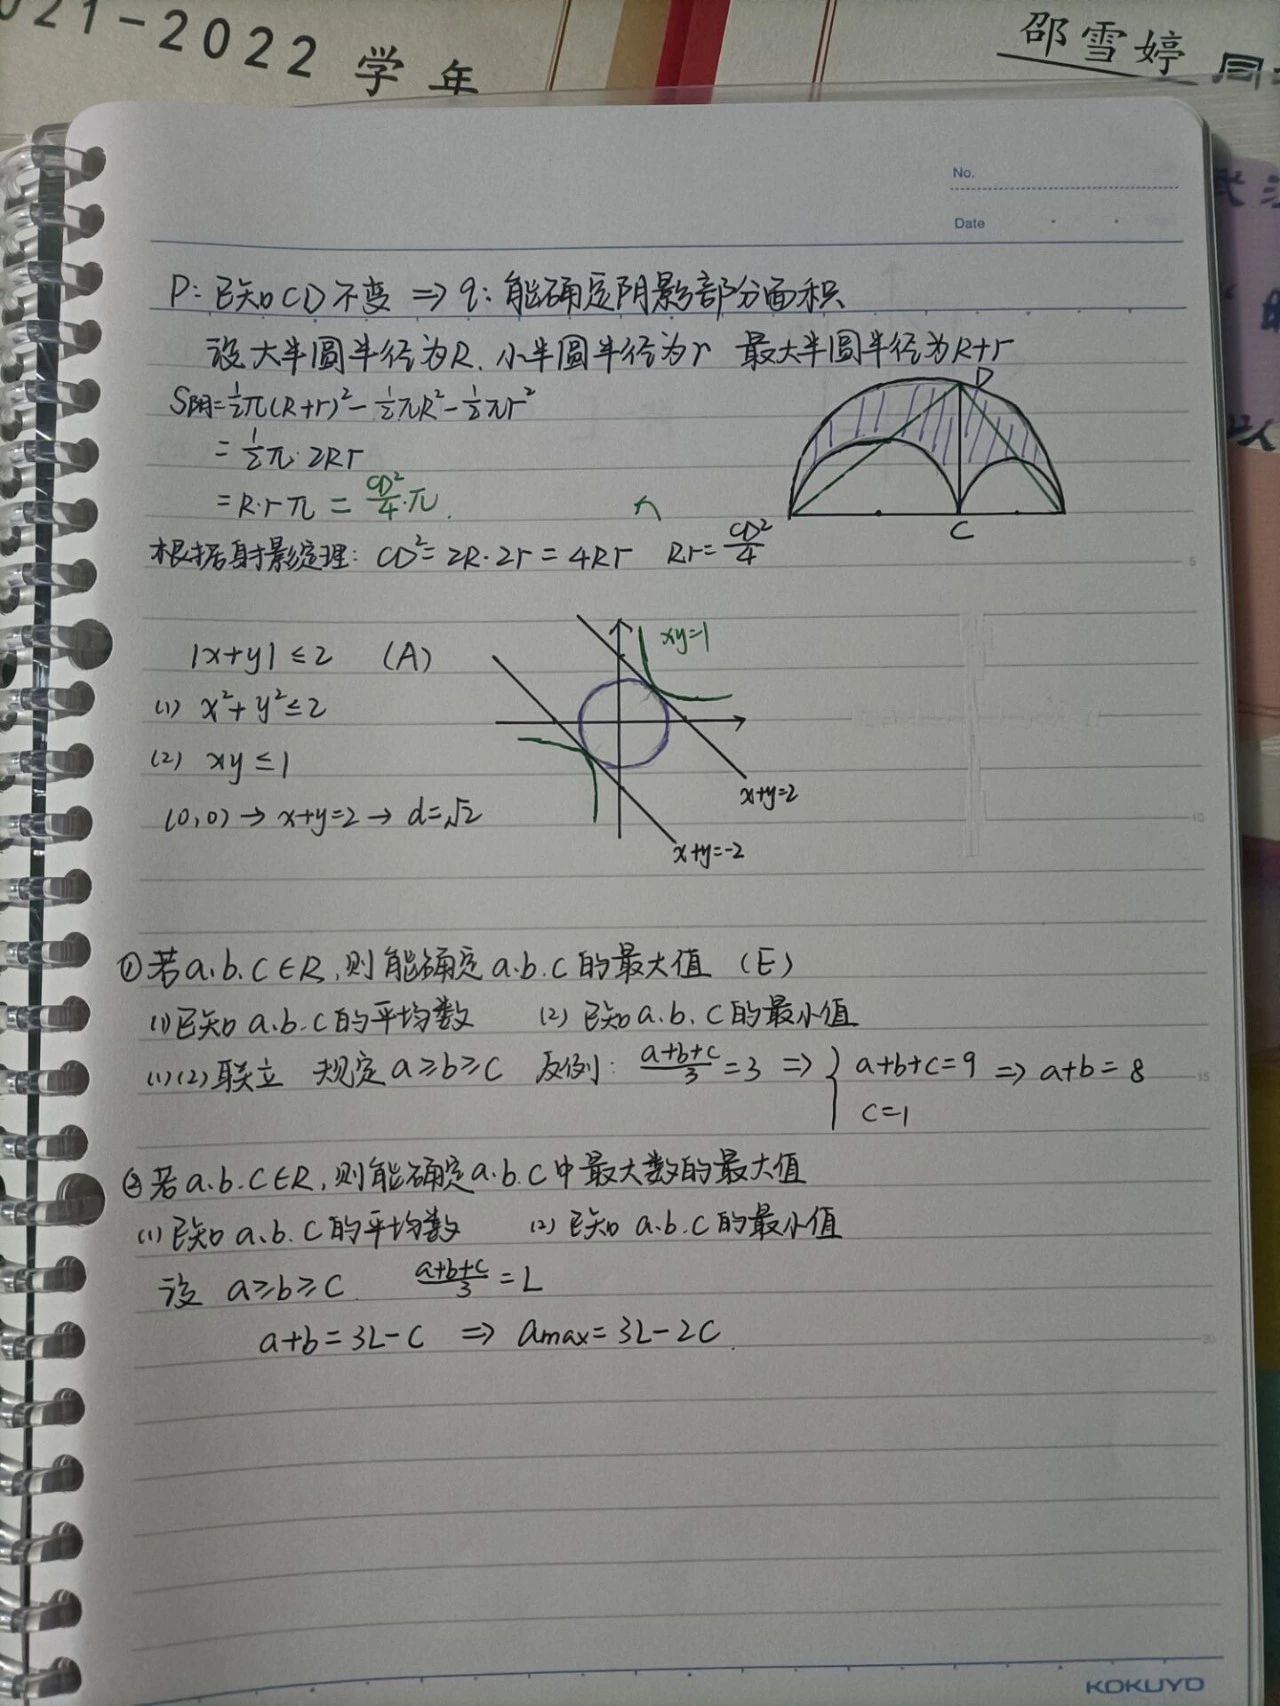 021-2022 学年
邵雪婷 同
No.
Date
P: 已知CD不变 ⇒ q: 能确定阴影部分面积
设大半圆半径为R. 小半圆半径为r 最大半圆半径为R+r
S阴=½π(R+r)²-½πR²-½πr²
=½π·2Rr
=R·rπ = CD²/4·π.
D
C
根据射影定理: CD²=2R·2r=4Rr Rr=CD²/4
5
|x+y|≤2 (A)
xy=1
(1) x²+y²≤2
(2) xy≤1
x+y=2
(0,0)→x+y=2→d=√2
10
x+y=-2
①若a.b.c∈R,则能确定a.b.c的最大值 (E)
(1)已知a.b.c的平均数 (2)已知a.b.c的最小值
(1)(2)联立 规定a≥b≥c 反例: (a+b+c)/3=3 ⇒ { a+b+c=9 ⇒ a+b=8
15
c=1
②若a.b.c∈R,则能确定a.b.c中最大数的最大值
(1)已知a.b.c的平均数 (2)已知a.b.c的最小值
设 a≥b≥c. (a+b+c)/3=L
a+b=3L-c ⇒ amax=3L-2c.
20
KOKUYO